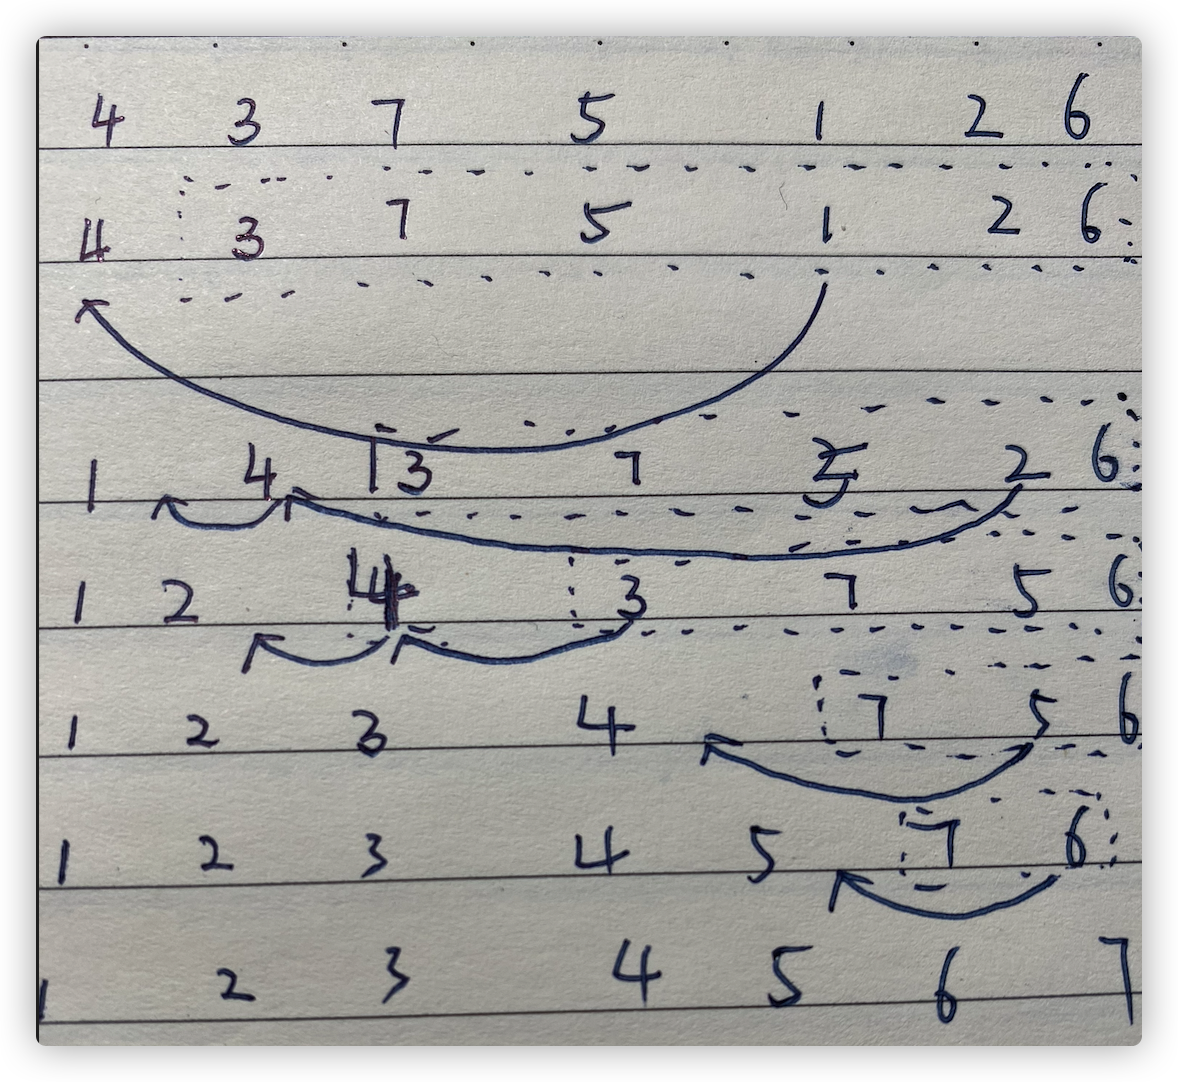 4 3 7 5 1 2 6
4 3 7 5 1 2 6
1 4 3 7 5 2 6
1 2 4 3 7 5 6
1 2 3 4 7 5 6
1 2 3 4 5 7 6
1 2 3 4 5 6 7